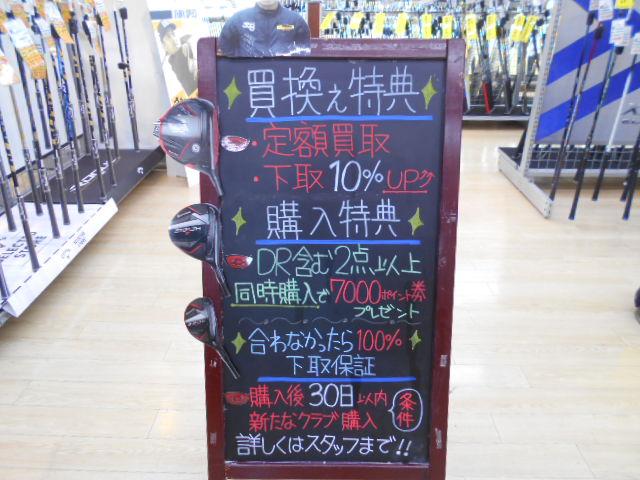 買換え特典
・定額買取
・下取10%UP
購入特典
DR含む2点以上
同時購入で7000ポイント券
プレゼント
合わなかったら100%
下取保証
購入後30日以内
新たなクラブ購入
条件
詳しくはスタッフまで!!